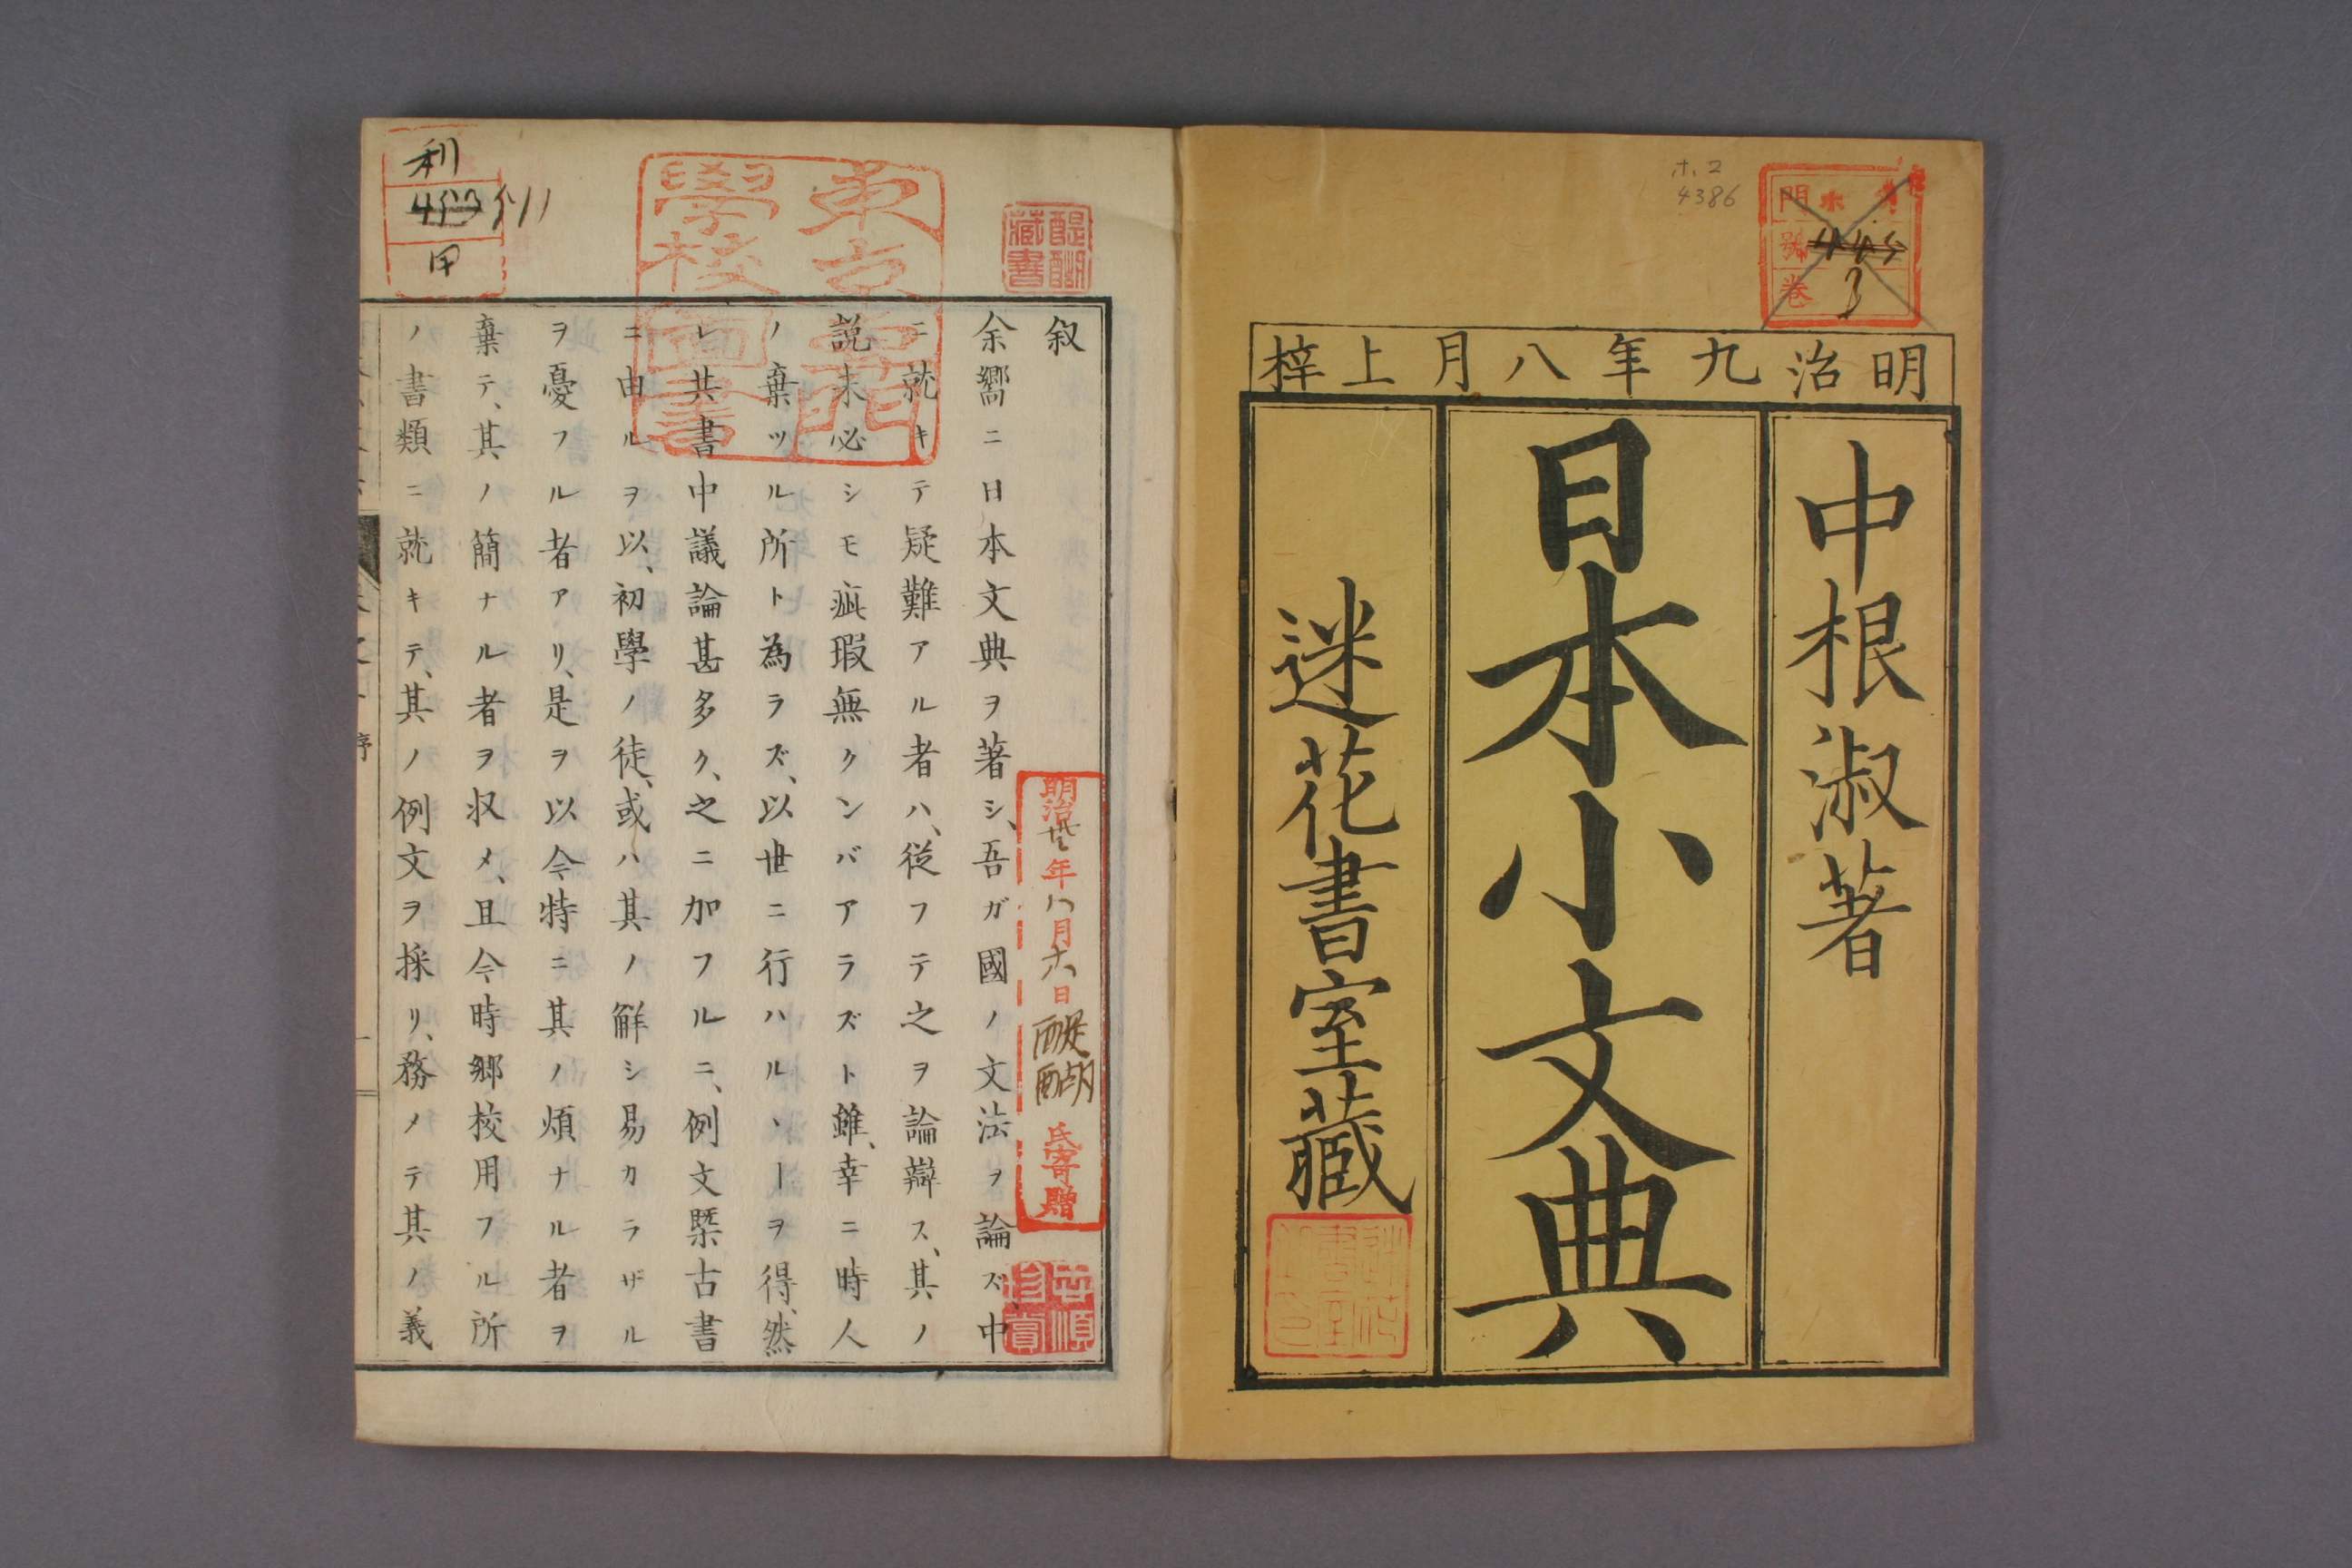 明治九年八月上梓
中根淑著
日本小文典
迷花書室藏
ホ2
4386
門 ホ
號
卷 3
醍醐藏書
東京專門學校圖書
利
甲
叙
余嚮ニ日本文典ヲ著シ、吾ガ國ノ文法ヲ論ズ、中
ニ就キテ疑難アル者ハ、從フテ之ヲ論辯ス、其ノ
説未必シモ疵瑕無クンバアラズト雖、幸ニ時人
ノ棄ツル所ト為ラズ、以世ニ行ハルヽヿヲ得、然
レ共書中議論甚多ク、之ニ加フルニ、例文槩古書
ニ由ルヲ以、初學ノ徒、或ハ其ノ解シ易カラザル
ヲ憂フル者アリ、是ヲ以今特ニ其ノ煩ナル者ヲ
棄テ、其ノ簡ナル者ヲ収メ、且今時郷校用フル所
ノ書類ニ就キテ、其ノ例文ヲ採リ、務メテ其ノ義
明治 年八月 日醍醐氏寄贈
序
一